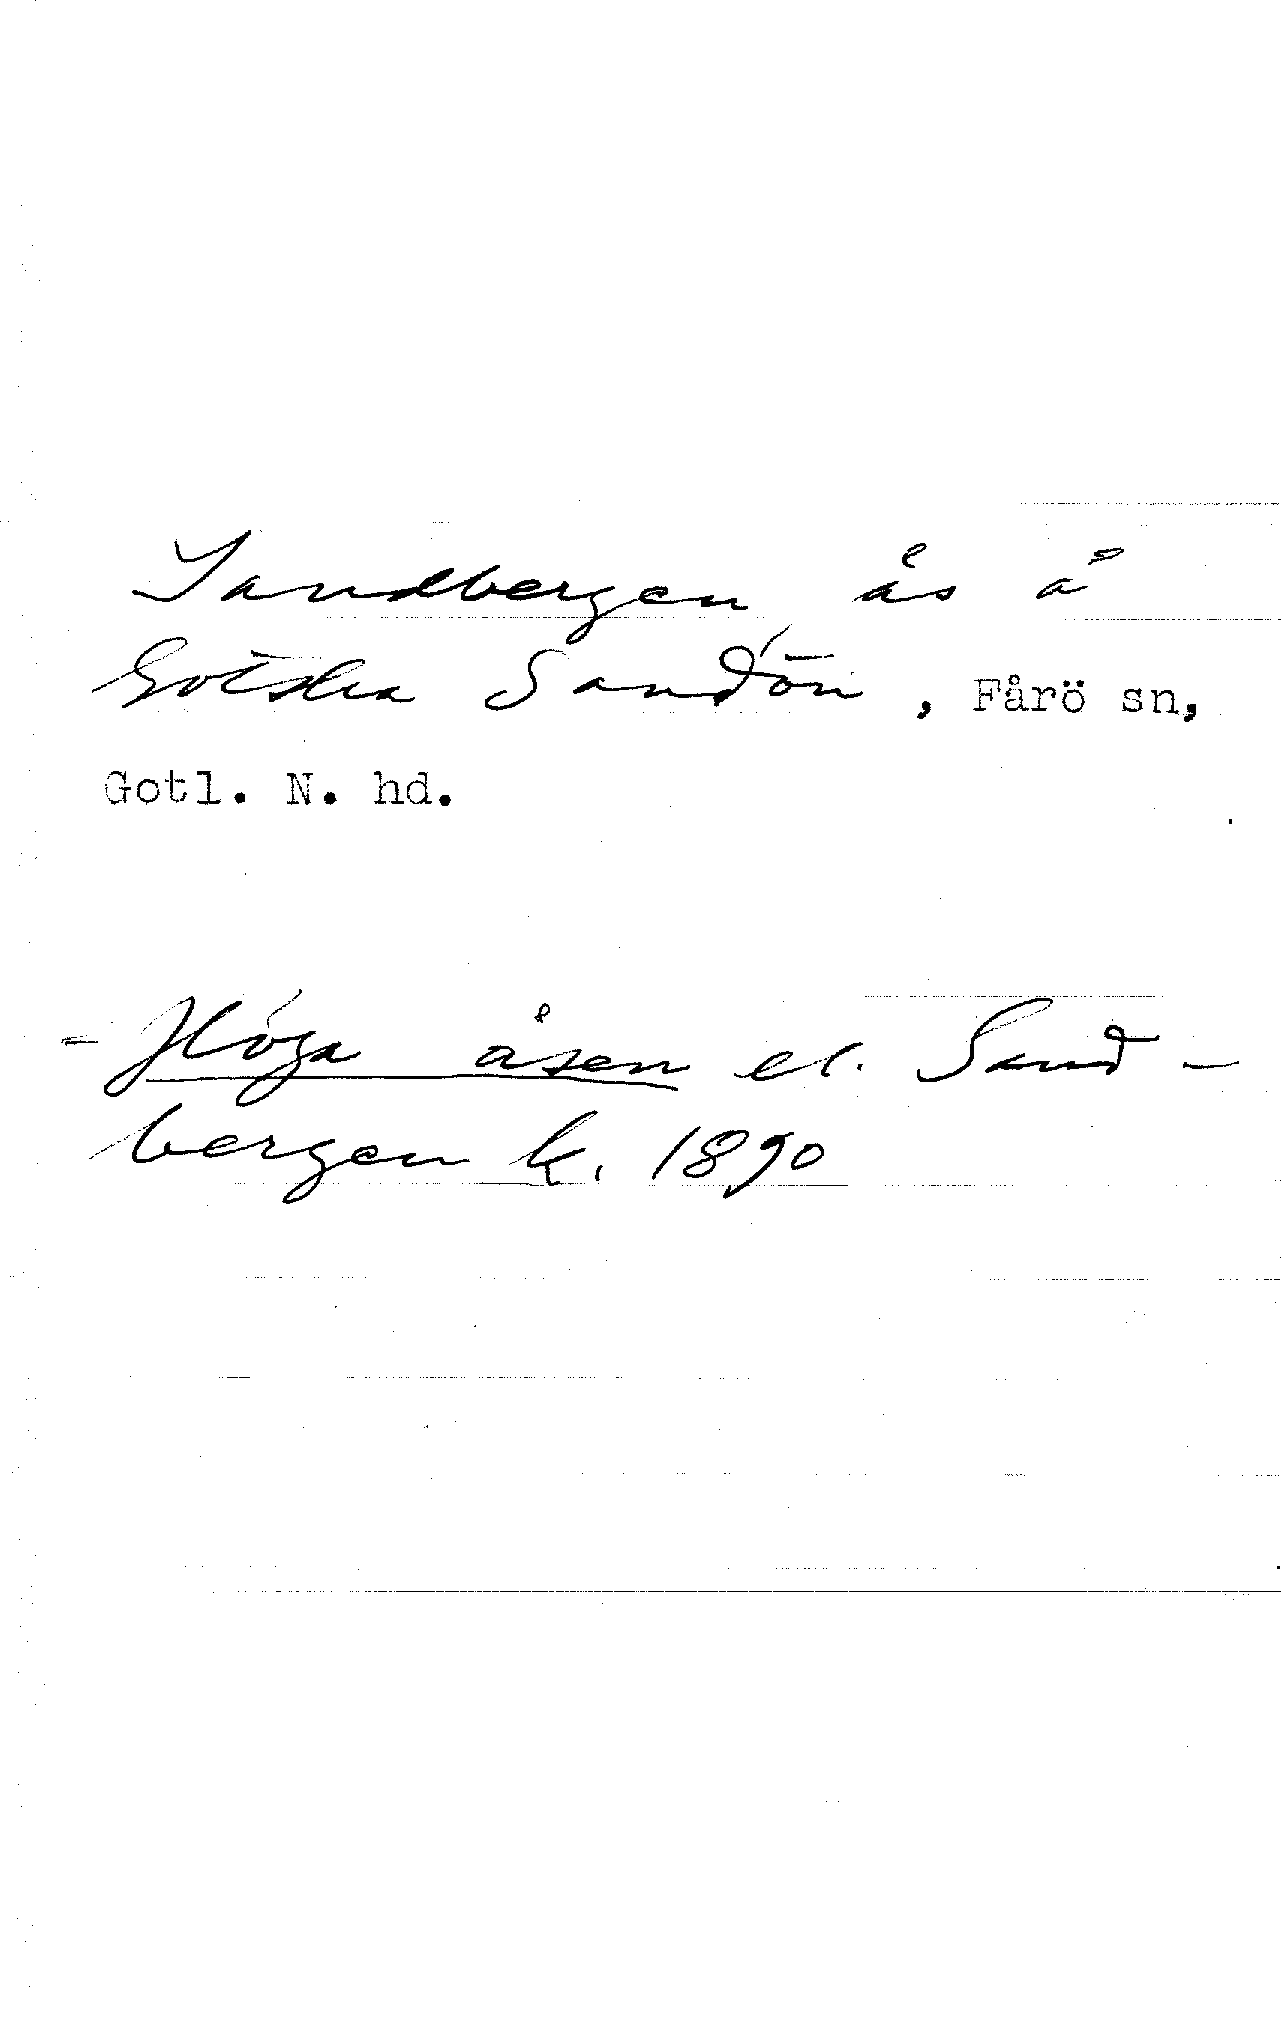 Sandbergen, ås å
Gotska Sandön, Fårö sn,
Gotl. N. hd.
- Höga åsen el. Sand-
bergen k. 1890